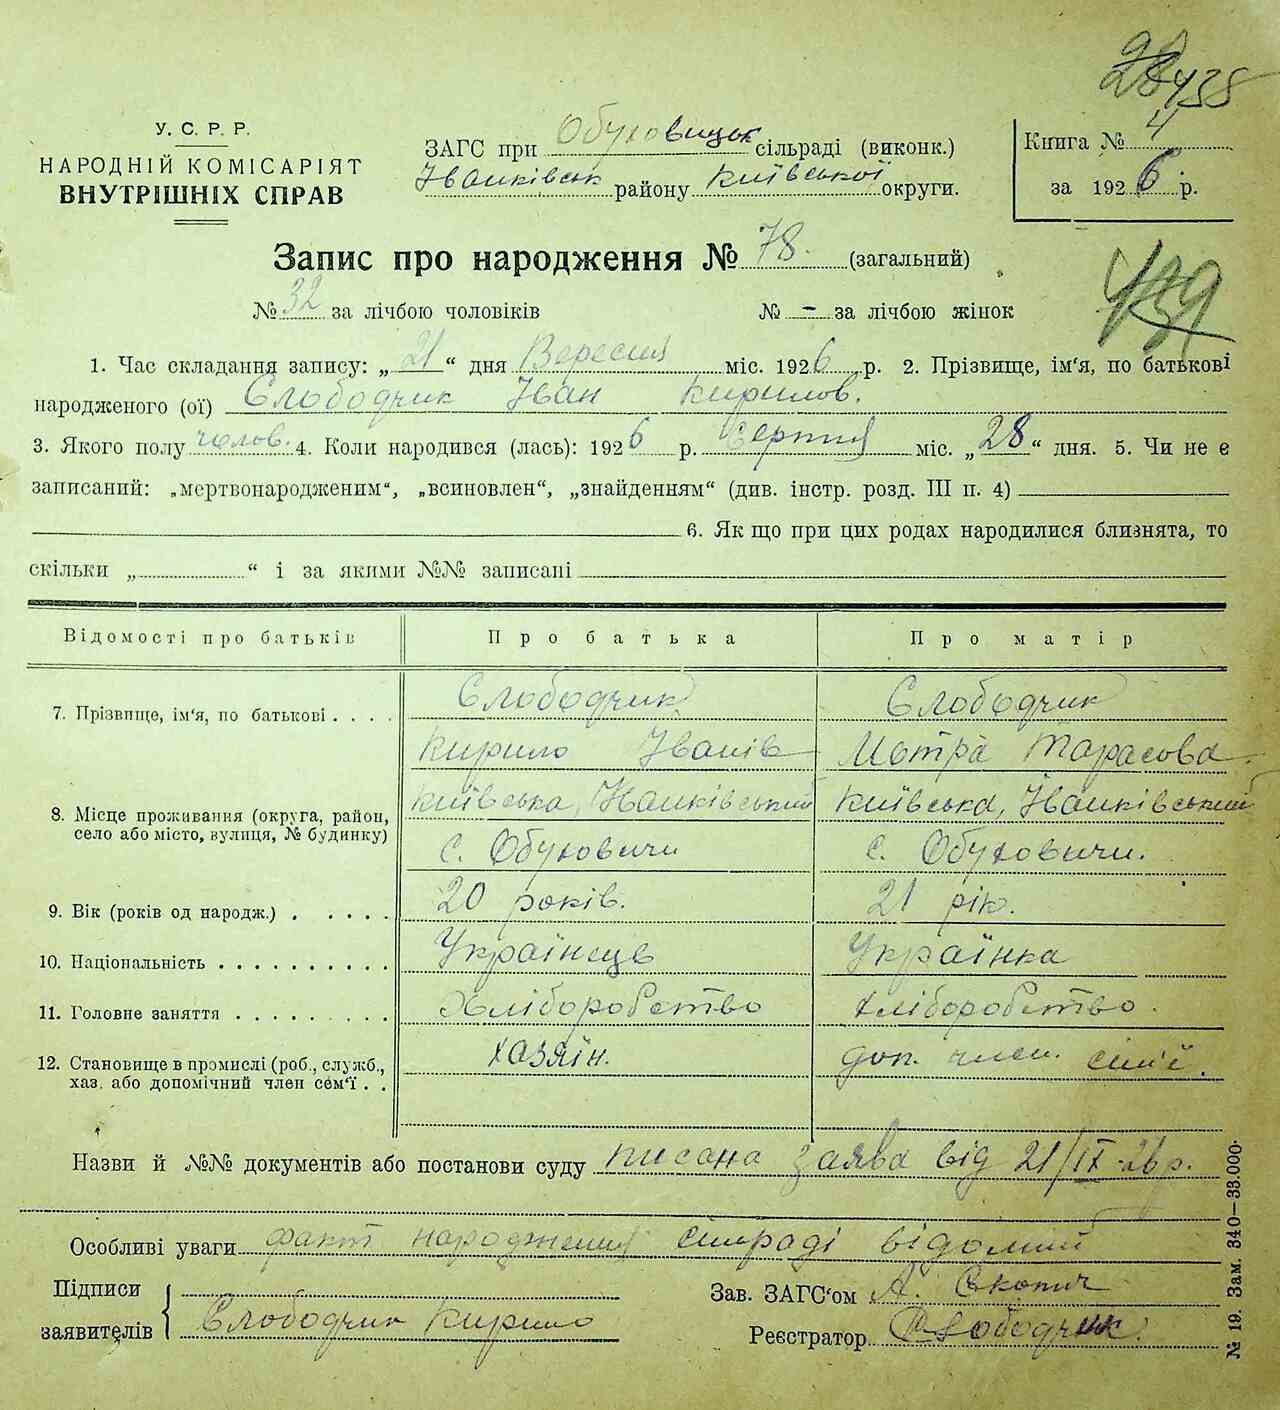 У. С. Р. Р.
НАРОДНІЙ КОМІСАРІЯТ
ВНУТРІШНІХ СПРАВ
ЗАГС при Обуховицьк сільраді (виконк.)
Іванківськ району Київської округи.
Книга № 4
за 1926 р.
Запис про народження № 78. (загальний)
439
№ 32 за лічбою чоловіків № - за лічбою жінок
1. Час складання запису: „21“ дня Вересня міс. 1926 р. 2. Прізвище, ім'я, по батькові
народженого (ої) Слободчик Іван Кирилов.
3. Якого полу чолов. 4. Коли народився (лась): 1926 р. Серпня міс. „28“ дня. 5. Чи не є
записаний: „мертвонародженим“, „всиновлен“, „знайденням“ (див. інстр. розд. III п. 4)
6. Як що при цих родах народилися близнята, то
скільки „ “ і за якими №№ записані
Відомості про батьків Про батька Про матір
7. Прізвище, ім'я, по батькові . . . . Слободчик Слободчик
Кирило Іванів Мотря Тарасова
8. Місце проживання (округа, район, село або місто, вулиця, № будинку) Київська, Іванківський Київська, Іванківський
с. Обуховичи с. Обуховичи.
9. Вік (років од народж.) . . . . . 20 років. 21 рік.
10. Національність . . . . . . . . . . Українець Українка
11. Головне заняття . . . . . . . . . Хліборобство хліборобство.
12. Становище в промислі (роб., служб., хаз. або допомічний член сем'ї . . хазяїн. доп. член. сім'ї.
Назви й №№ документів або постанови суду писана заява від 21/IX-26 р.
Особливі уваги факт народження сільраді відомий
Підписи
заявителів Слободчик Кирило
Зав. ЗАГС'ом А.
Реєстратор Слободчик.
№ 19. Зам. 340—33.000.